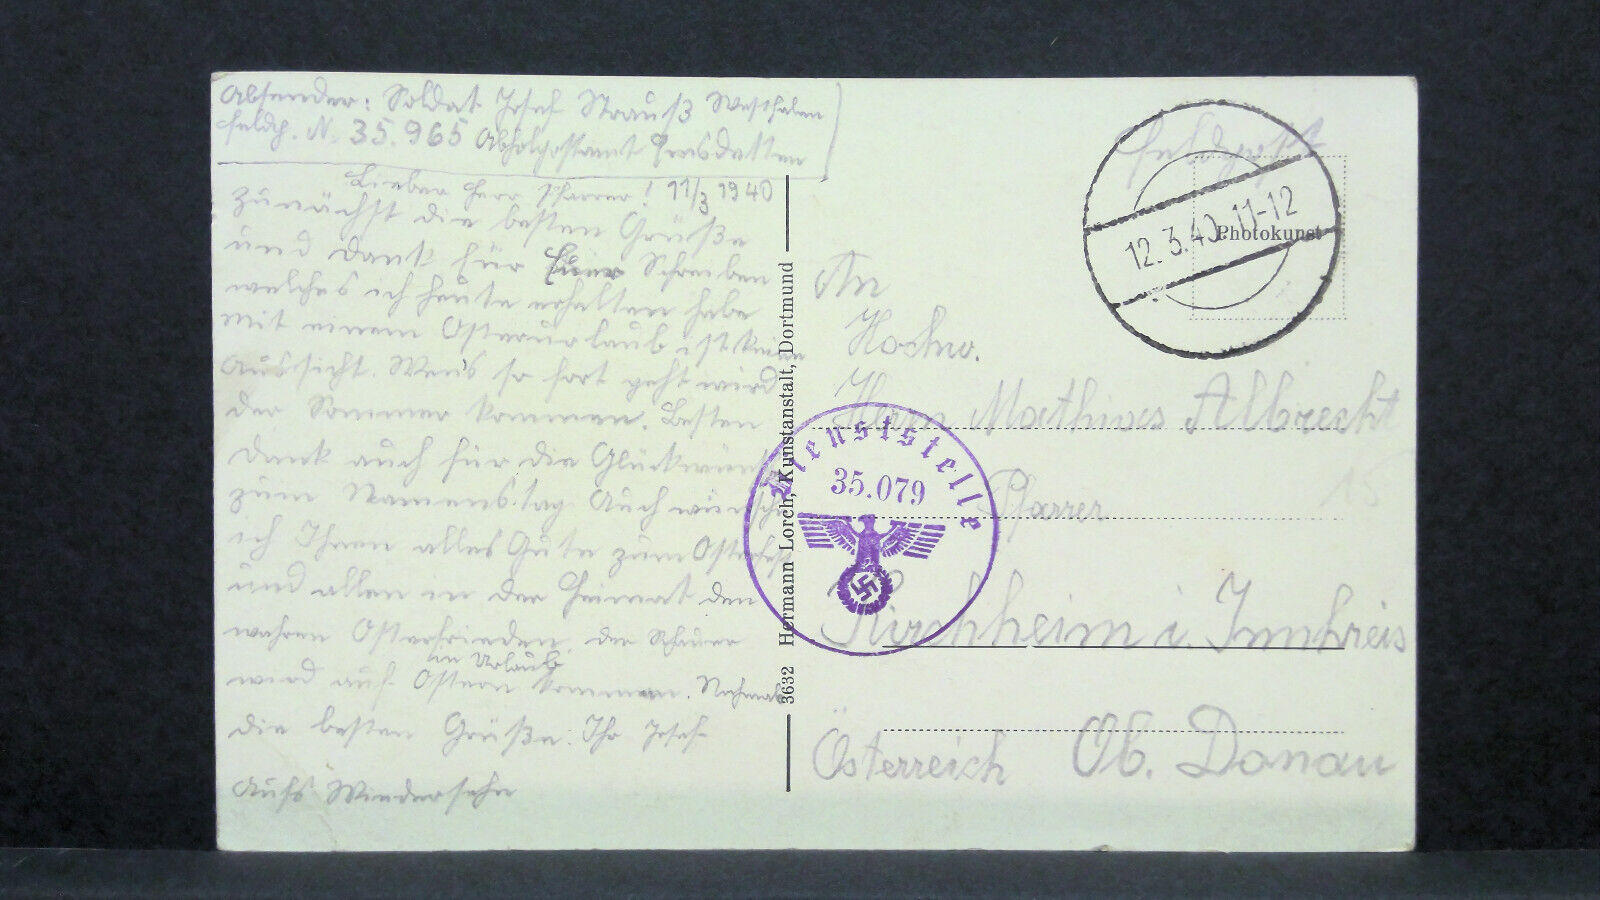 Absender: Soldat Josef Strauß Westfalen
Feldp. N. 35.965 Abholpostamt Emsdetten
Lieber Herr Pfarrer! 11/3 1940
Zunächst die besten Grüße
und Dank für Euer Schreiben
welches ich heute erhalten habe
mit einem Osterurlaub ist keine
Aussicht. Wens so fort geht wird
der Sommer kommen. Besten
Dank auch für die Glückwünsche
zum Namenstag. Auch wünsche
ich Ihnen alles Gute zum Osterfest
und allen in der Heimat den
wahren Osterfrieden, der
in Urlaub
wird auf Ostern kommen. Nochmals
die besten Grüße. Ihr Josef
Aufs Wiedersehn
3632 Hermann Lorch, Kunstanstalt, Dortmund
Feldpost
12.3.40.11-12
Photokunst
An
Hochw.
Herrn Mathias Albrecht
Pfarrer
Kirchheim i. Innkreis
Österreich Ob. Donau
Dienststelle
35.079
15